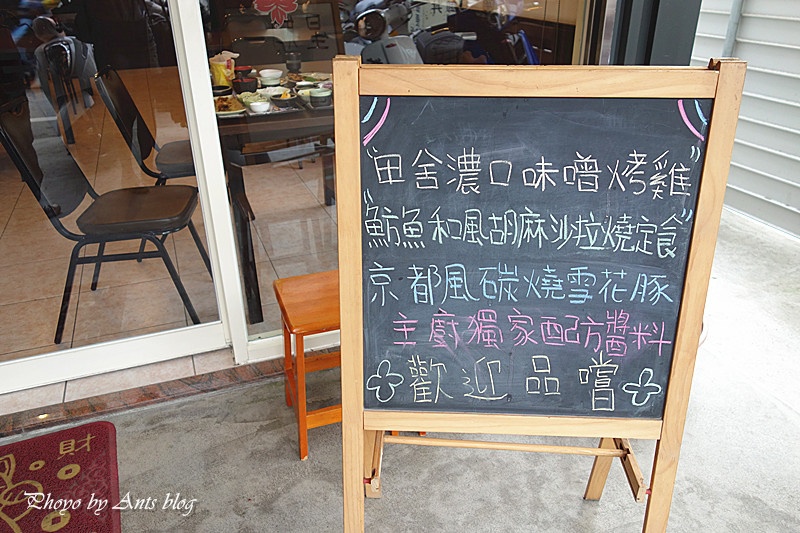 "田舍濃口味噌烤雞"
"魴魚和風胡麻沙拉燒定食"
京都風碳燒雪花豚
主廚獨家配方醬料
歡迎品嚐
財
Phoyo by Ants blog